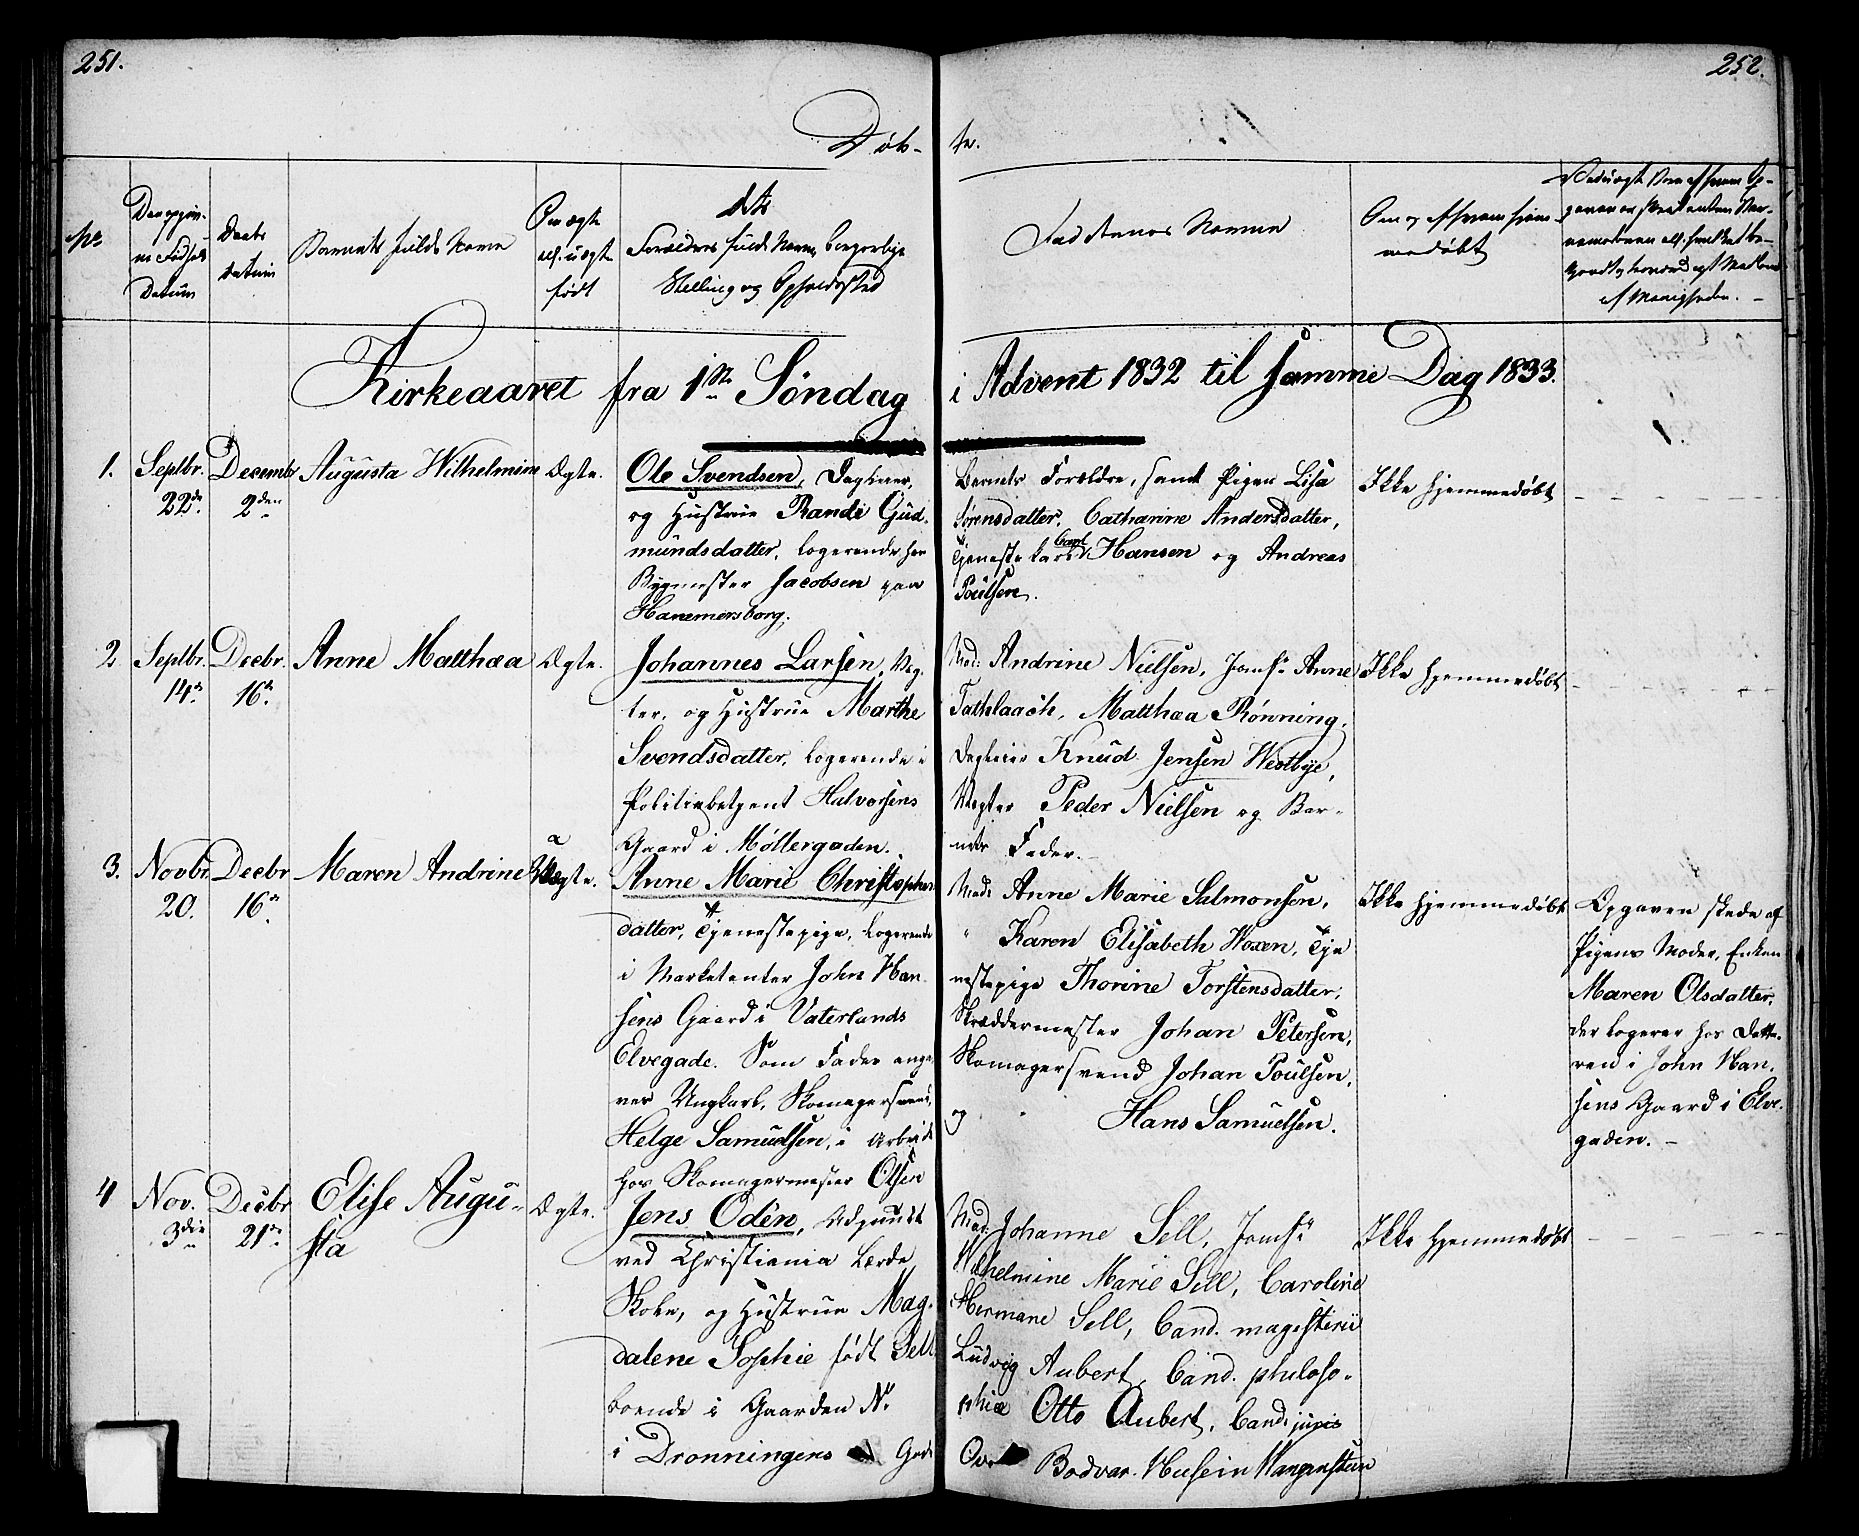 251.
252.
Døb-
te.
No
Den opgiv-
ne Fødsels
Datum
Daabs
datum
Barnets fulde Navn
Om ægte
ell. uægte
født
Forældres fulde Navne, borgerlige
Stilling og Opholdssted
Faddernes Navne
Om og af hvem hjem-
medøbt
Kirkeaaret fra 1ste Søndag i Advent 1832 til samme Dag 1833.
1.
Septbr.
22de
Decembr
2den
Augusta Wilhelmine
Ægte.
Ole Svendsen, Dagleier,
og Hustrue Randi Gud-
mundsdatter, logerende hos
Bygmester Jacobsen paa
Hammersborg.
Barnets Forældre, samt Pigen Lisa
Sørensdatter, Catharine Andersdatter,
Tjenestekarl Carl Hansen og Andreas
Poulsen.
Ikke hjemmedøbt
2
Septbr.
14de
Decbr.
16de
Anne Matthea
Ægte.
Johannes Larsen, Væg-
ter, og Hustrue Marthe
Svendsdatter, logerende i
Politiebetjent Halvorsens
Gaard i Møllergaden.
Mad: Andrine Nielsen, Jomfr Anne
Matthæa Rønning,
Dagleier Knud Jensen Westbye,
Vægter Peder Nielsen og Bar-
nets Fader.
Ikke hjemmedøbt
3.
Novbr
20.
Decbr
16de
Maren Andrine
Uægte.
Anne Marie Christophers-
datter, Tjenestepige, logerende
i Marketenter John Han-
sens Gaard i Vaterlands
Elvegade. Som Fader angi-
ves Ungkarl, Skomagersvend,
Helge Samuelsen, i Arbeide
hos Skomagermester Olsen
Mad: Anne Marie Salmonsen,
" Karen Elisabeth Woxen, Tje-
nestepige Thorine Torstensdatter,
Skræddermester Johan Petersen,
Skomagersvend Johan Poulsen,
og " Hans Samuelsen.
Ikke hjemmedøbt
Opgaven skede af
Pigens Moder, Enken
Maren Olsdatter,
der logerer hos Datte-
ren i John Han-
sens Gaard i Elve-
gaden.
4
Nov.
3die
Decbr
21de
Elise Augu-
sta
Ægte.
Jens Odén, Adjunct
ved Christiania Lærde
Skole, og Hustrue Mag-
dalene Sophie født Sell
boende i Gaarden No
i Dronningens Gade
Mad: Johanne Sell, Jomfr
Wilhelmine Marie Sell, Caroline
Hermane Sell, Cand. magisterii
Ludvig Aubert, Cand. philoso-
phiæ Otto Aubert, Cand: juris
Ove Bodvar Hussein Wangensteen
Ikke hjemmedøbt